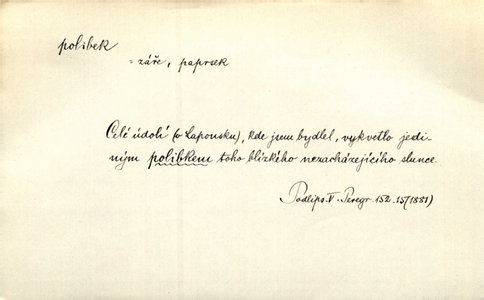 polibek
= záře, paprsek
Celé údolí (v Laponsku), kde jsem bydlel, vykvetlo jedi-
ným polibkem toho blízkého nezacházejícího slunce.
Podlips. V. Peregr. 152. 15 (1881)